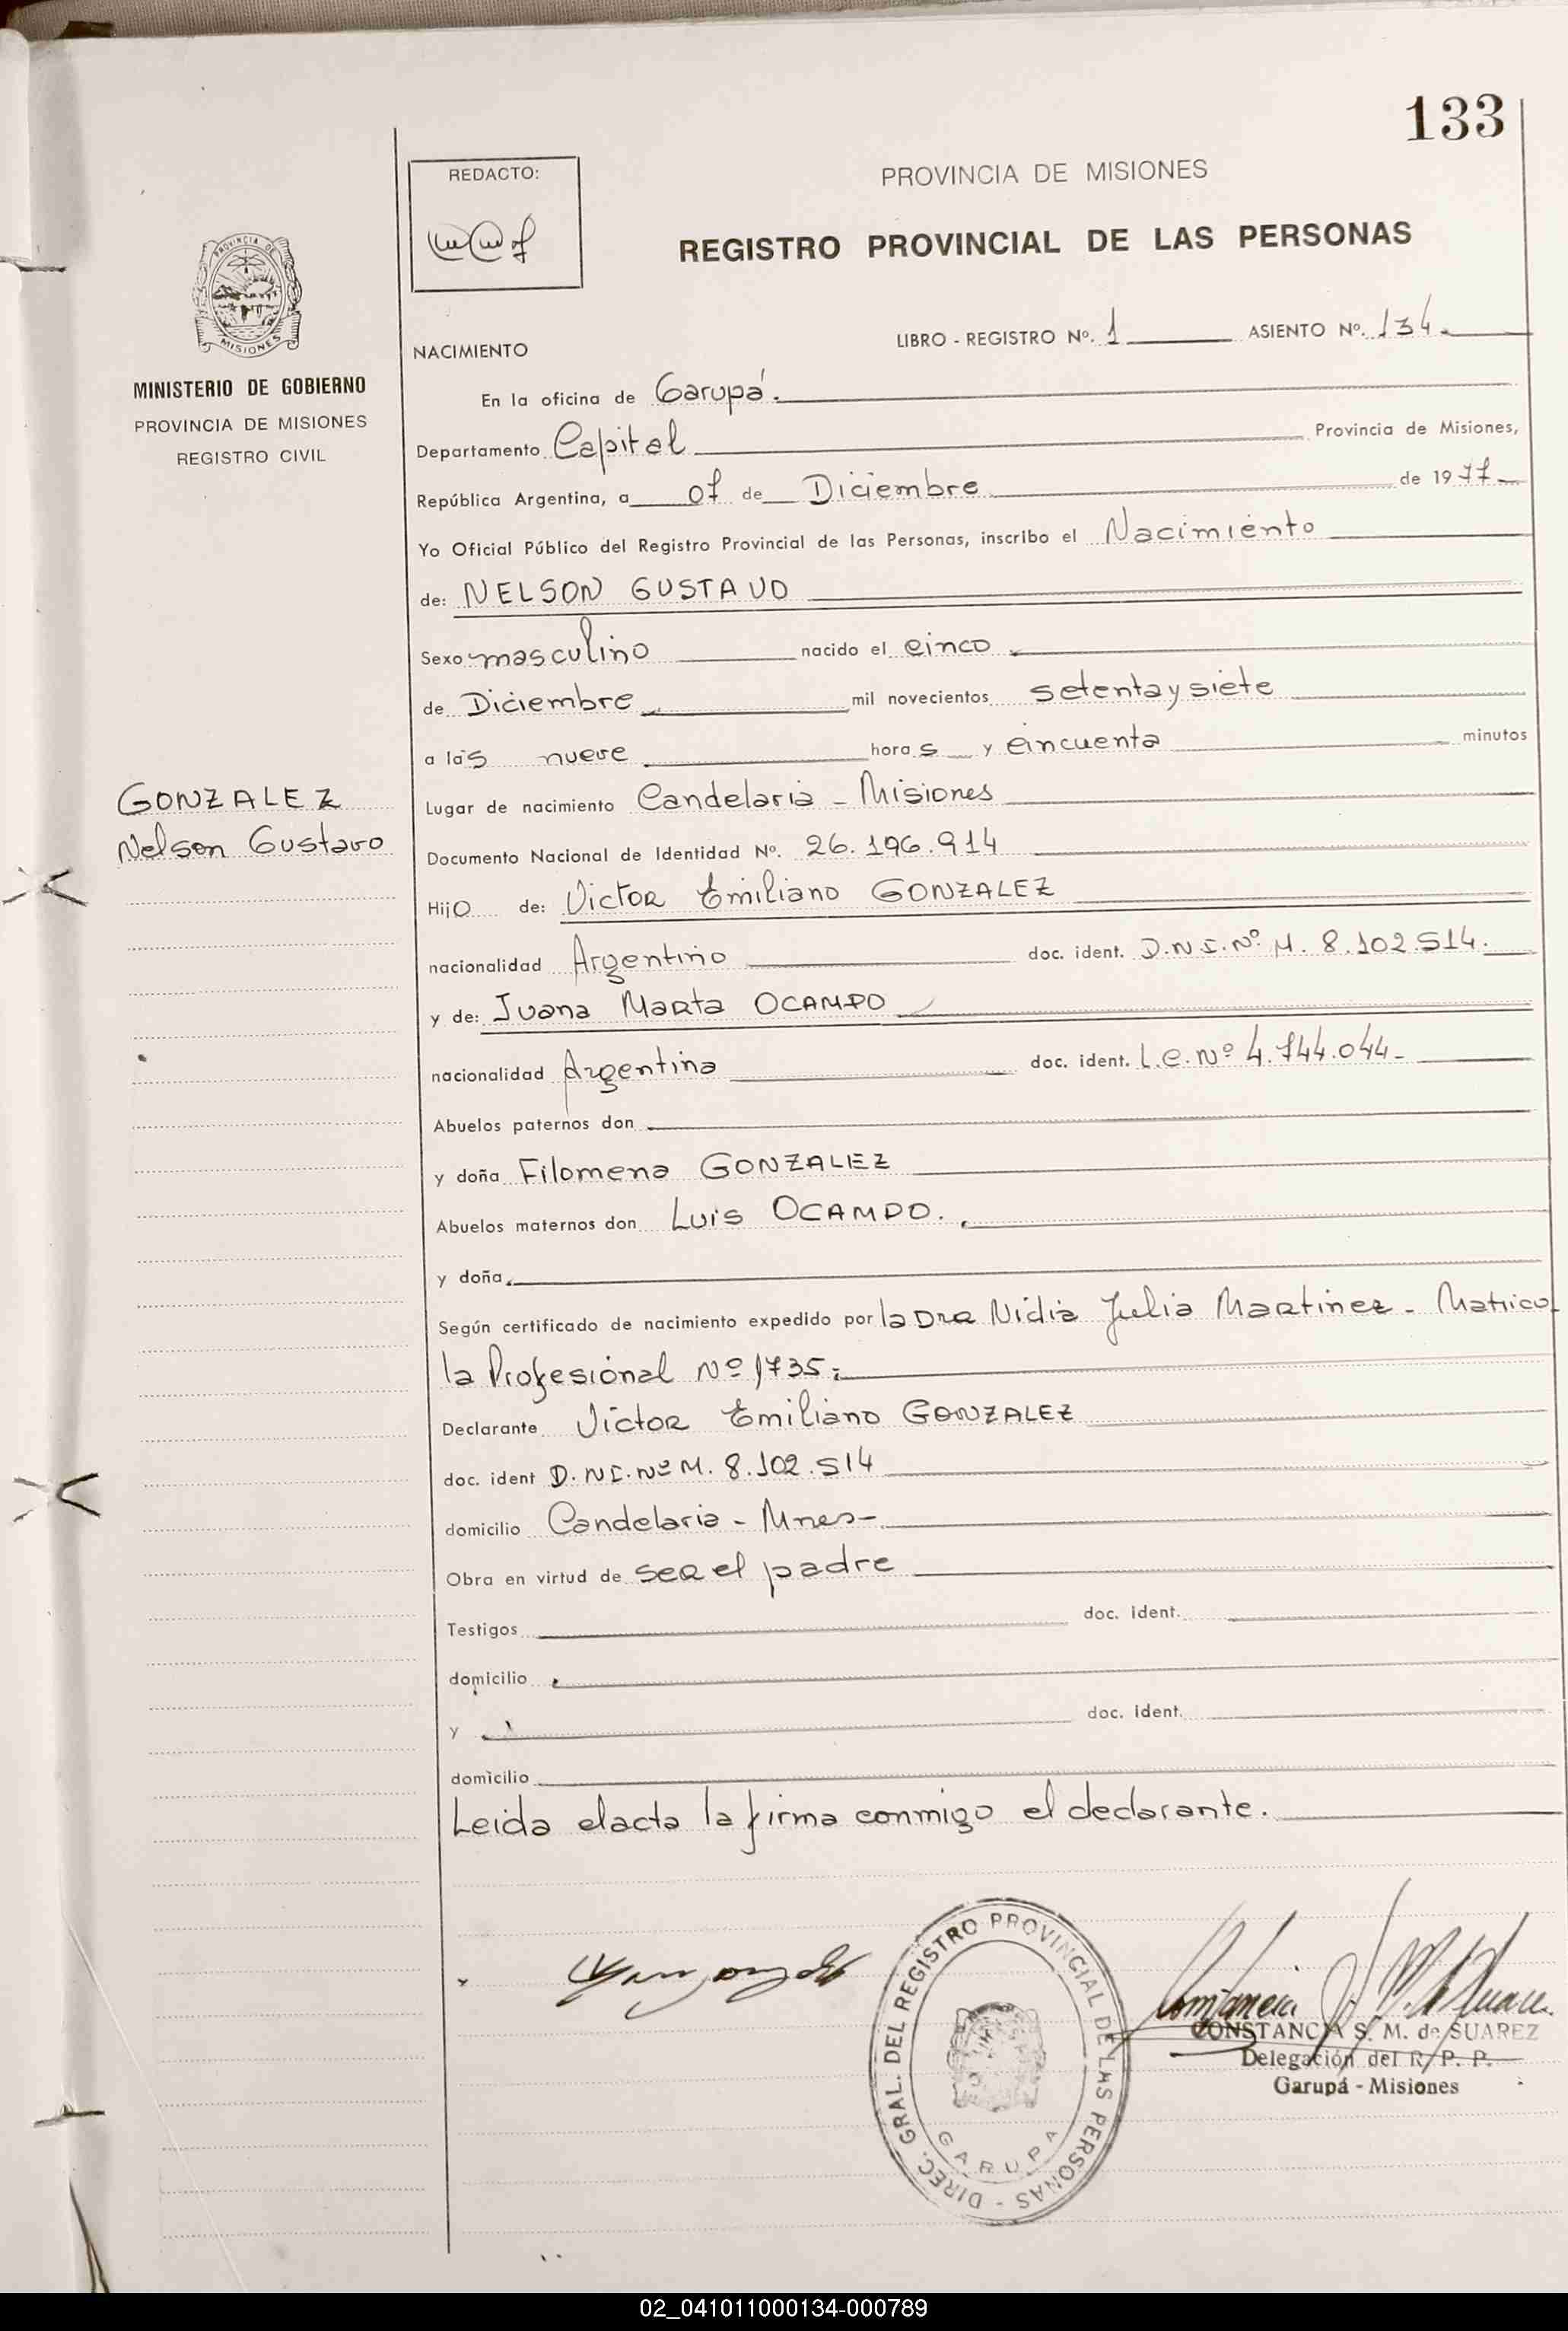 133
REDACTO:
PROVINCIA DE MISIONES
REGISTRO PROVINCIAL DE LAS PERSONAS
PROVINCIA DE
MISIONES
MINISTERIO DE GOBIERNO
PROVINCIA DE MISIONES
REGISTRO CIVIL
LIBRO - REGISTRO Nº. 1 ASIENTO Nº. 134.
NACIMIENTO
En la oficina de Garupá.
Departamento Capital Provincia de Misiones,
República Argentina, a 07 de Diciembre de 1977
Yo Oficial Público del Registro Provincial de las Personas, inscribo el Nacimiento
de: NELSON GUSTAVO
Sexo masculino nacido el cinco
de Diciembre mil novecientos setenta y siete
a las nueve horas y cincuenta minutos
GONZALEZ
Nelson Gustavo
Lugar de nacimiento Candelaria - Misiones
Documento Nacional de Identidad Nº. 26.196.914
Hijo de: Victor Emiliano GONZALEZ
nacionalidad Argentino doc. ident. D.N.I. Nº M. 8.102.514.
y de: Juana Marta OCAMPO
nacionalidad Argentina doc. ident. L.C. Nº 4.744.044-
Abuelos paternos don
y doña Filomena GONZALEZ
Abuelos maternos don Luis OCAMPO.
y doña
Según certificado de nacimiento expedido por la Dra Nidia Julia Martinez - Matricu
la Profesional Nº 1735;
Declarante Victor Emiliano GONZALEZ
doc. ident D.N.I. Nº M. 8.102.514
domicilio Candelaria - Mnes-
Obra en virtud de ser el padre
Testigos doc. ident.
domicilio
y doc. ident.
domicilio
Leida el acta la firma conmigo el declarante.
DIREC. GRAL. DEL REGISTRO PROVINCIAL DE LAS PERSONAS -
GARUPA
CONSTANCIA S. M. de SUAREZ
Delegación del R. P. P.
Garupá - Misiones
02_041011000134-000789